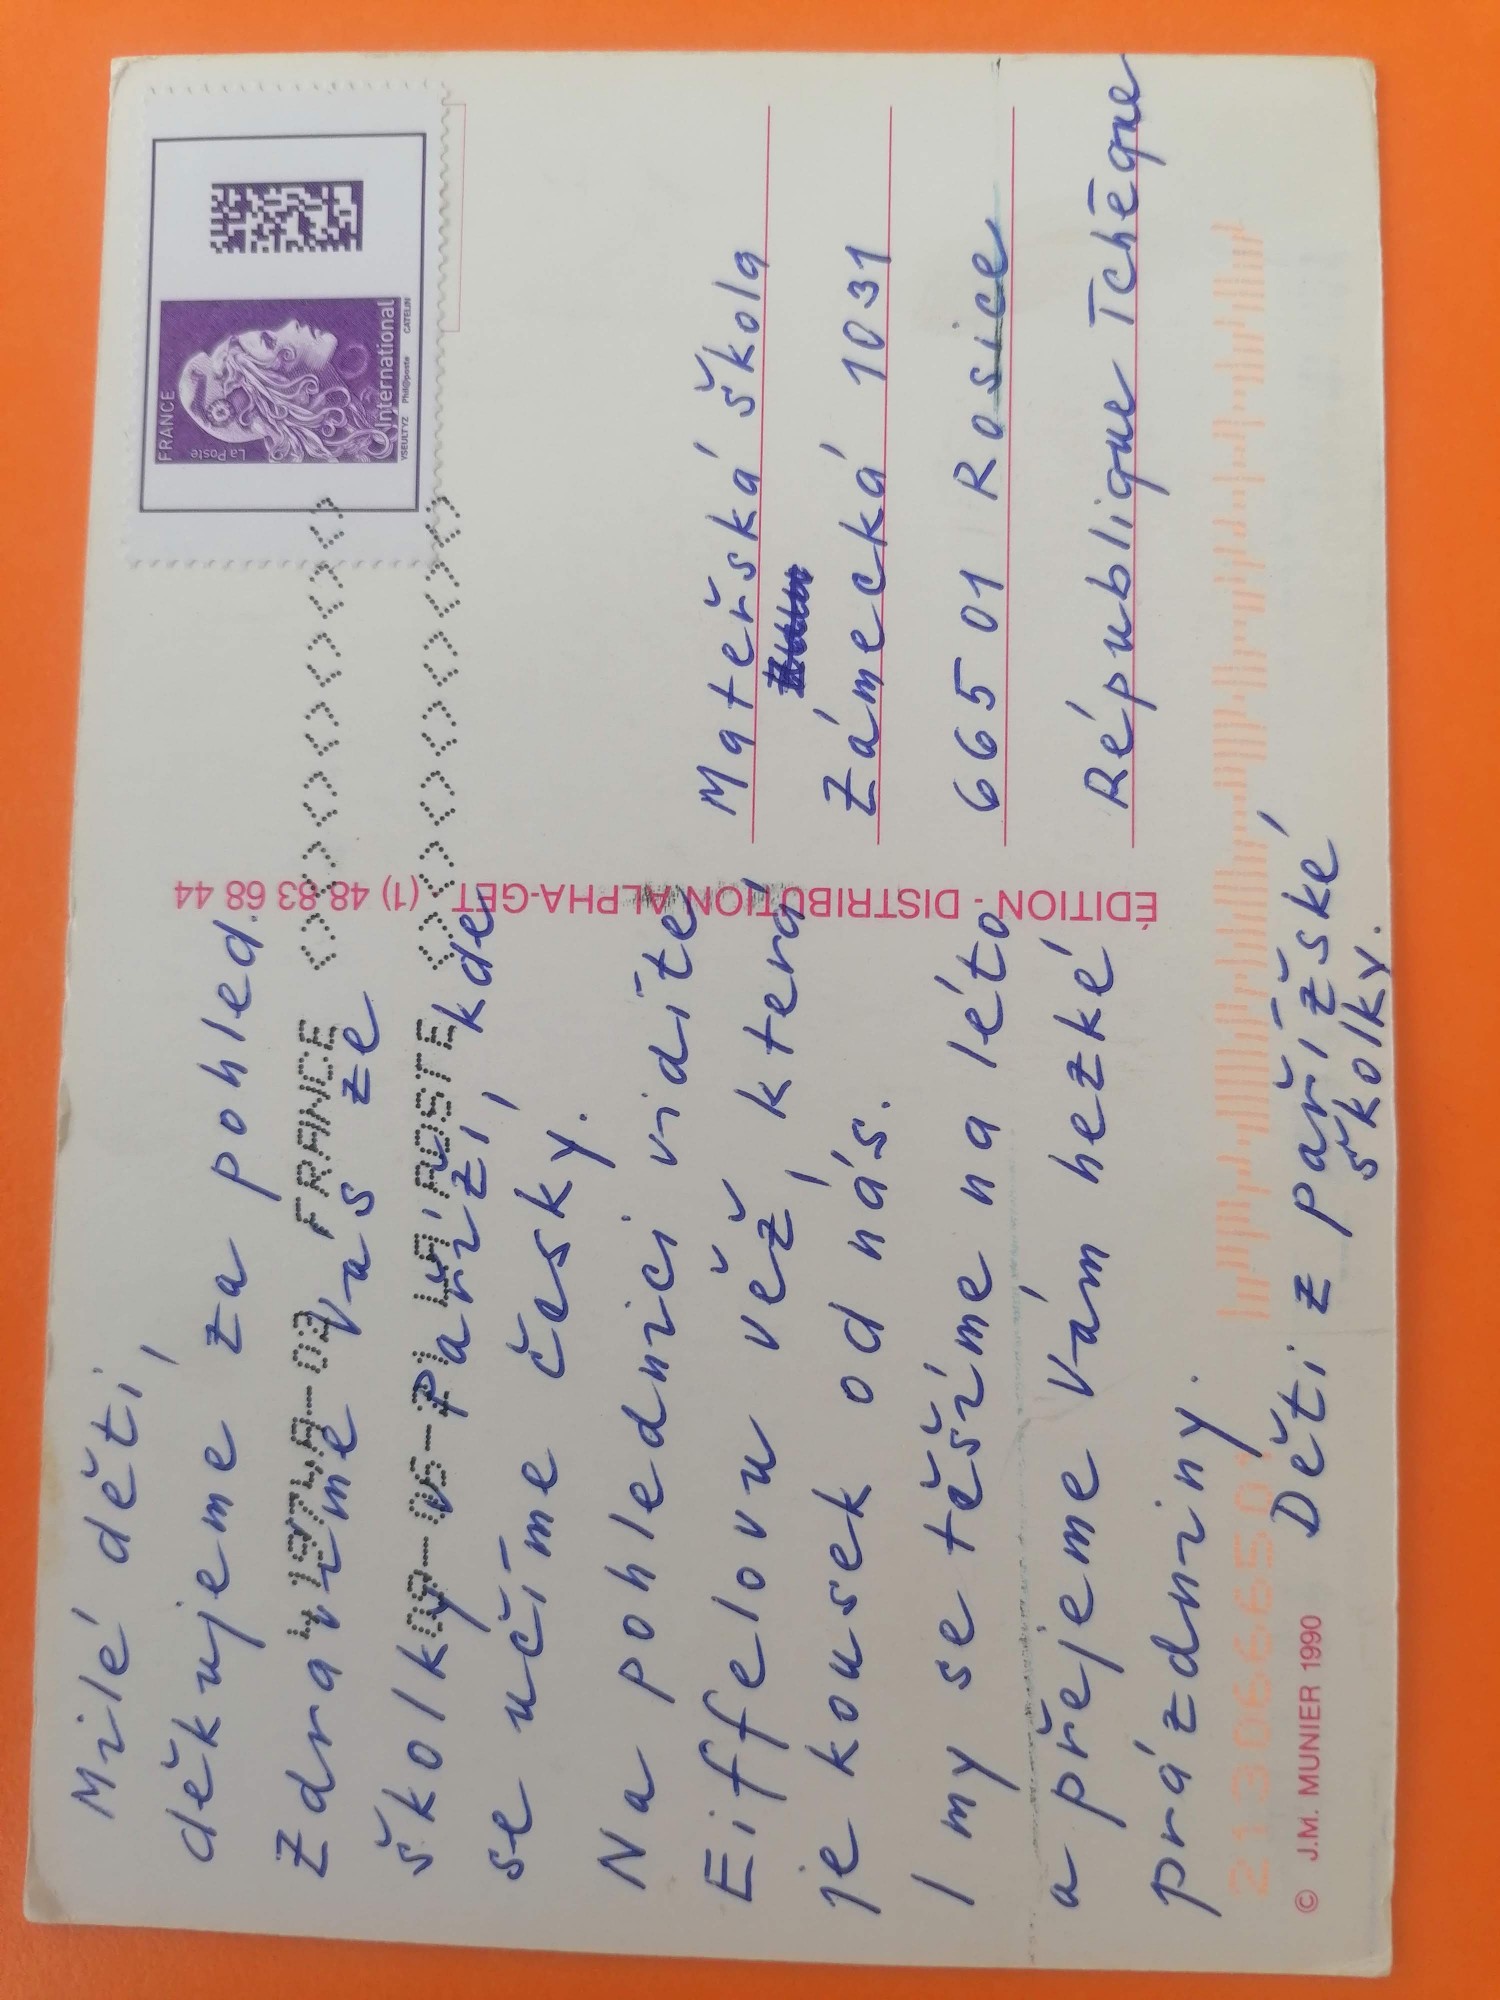 Milé děti,
děkujeme za pohled.
Zdravíme Vás ze
školky v Paříži, kde
se učíme česky.
Na pohlednici vidíte
Eiffelovu věž, která
je kousek od nás.
I my se těšíme na léto
a přejeme Vám hezké
prázdniny.
Děti z pařížské
školky.
41974A-03 FRANCE
LA POSTE
FRANCE
La Poste
International
YSEULT YZ Phil@poste CATELIN
Mateřská škola
Zámecká 1031
665 01 Rosice
République Tchèque
ÉDITION - DISTRIBUTION ALPHA-GET (1) 48 83 68 44
© J.M. MUNIER 1990